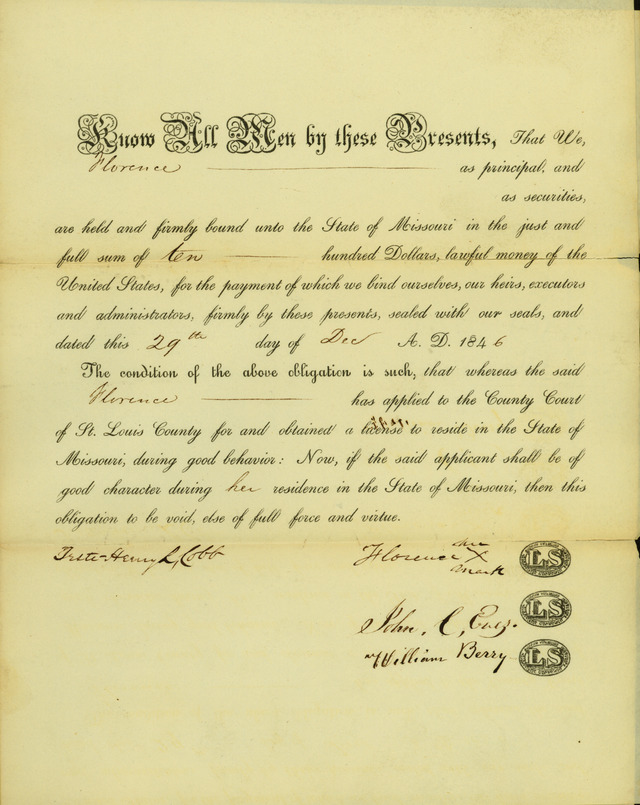 Know All Men by these Presents, That We,
Florence as principal, and
as securities,
are held and firmly bound unto the State of Missouri in the just and
full sum of ten hundred Dollars, lawful money of the
United States, for the payment of which we bind ourselves, our heirs, executors
and administrators, firmly by these presents, sealed with our seals, and
dated this 29th day of Dec A. D. 1846
The condition of the above obligation is such, that whereas the said
Florence has applied to the County Court
of St. Louis County for and obtained a license to reside in the State of
Missouri, during good behavior: Now, if the said applicant shall be of
good character during her residence in the State of Missouri, then this
obligation to be void, else of full force and virtue.
Teste Henry L, Cobb
Florence her X mark LS
John, C, LS
William Berry LS